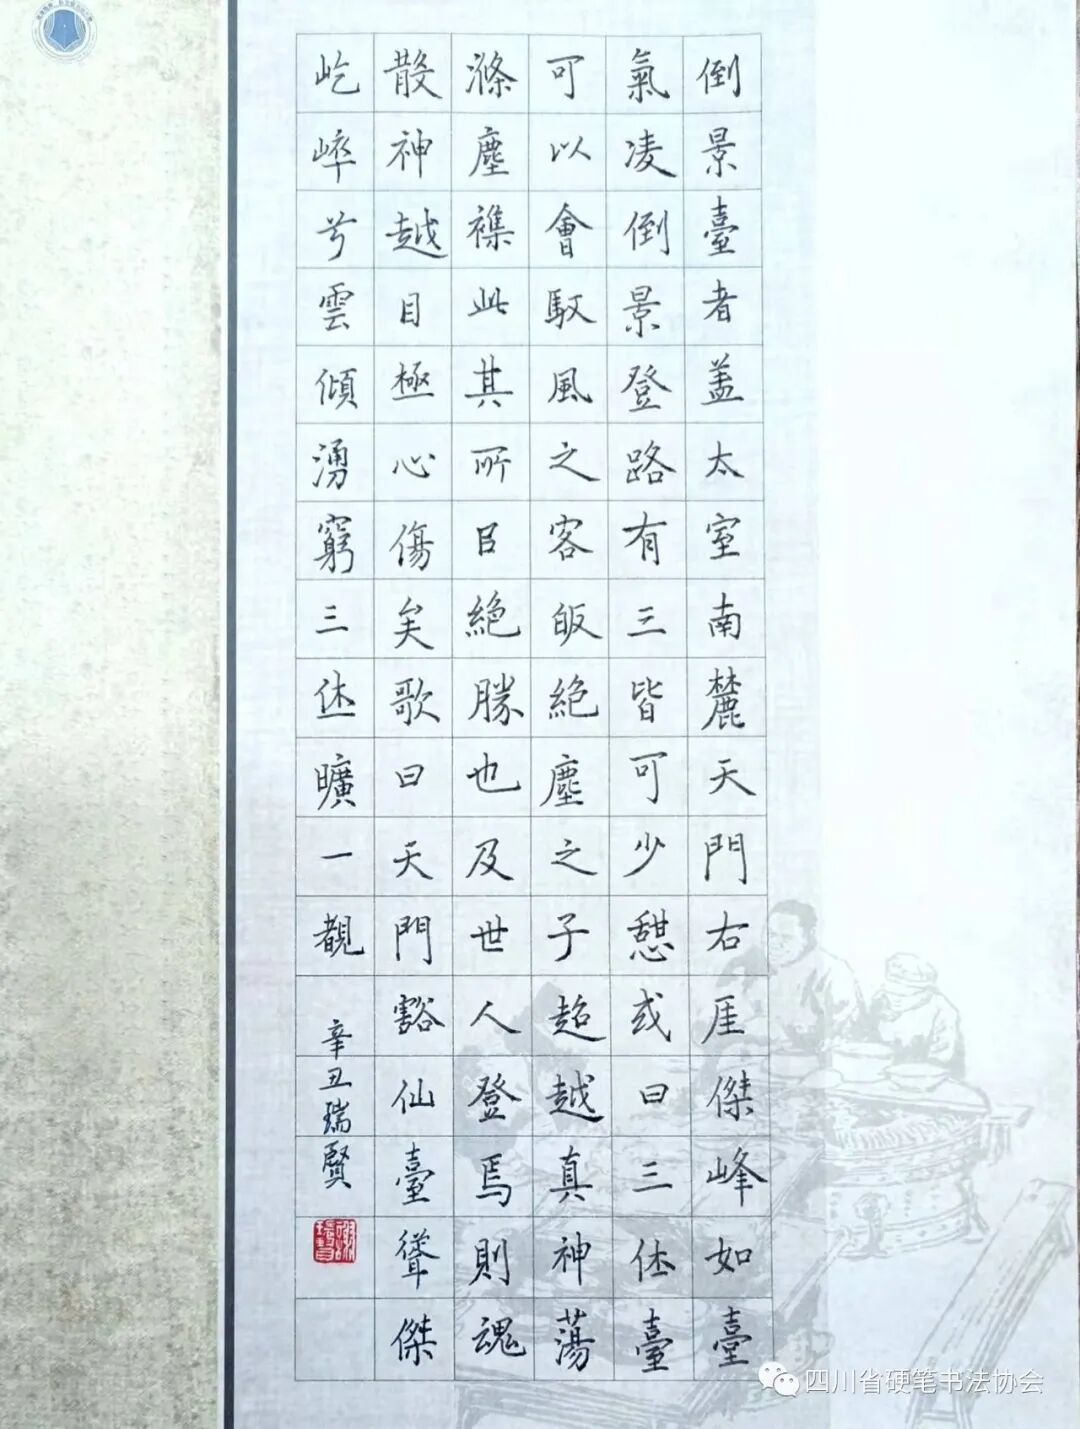 倒景臺者蓋太室南麓天門右厓傑峰如臺
氣凌倒景登路有三皆可少憩或曰三休臺
可以會馭風之客皈絶塵之子超越真神蕩
滌塵襟此其所㠯絶勝也及世人登焉則魂
散神越目極心傷矣歌曰天門豁仙臺聳傑
屹崒兮雲傾湧窮三休曠一覩
辛丑瑞賢
四川省硬笔书法协会